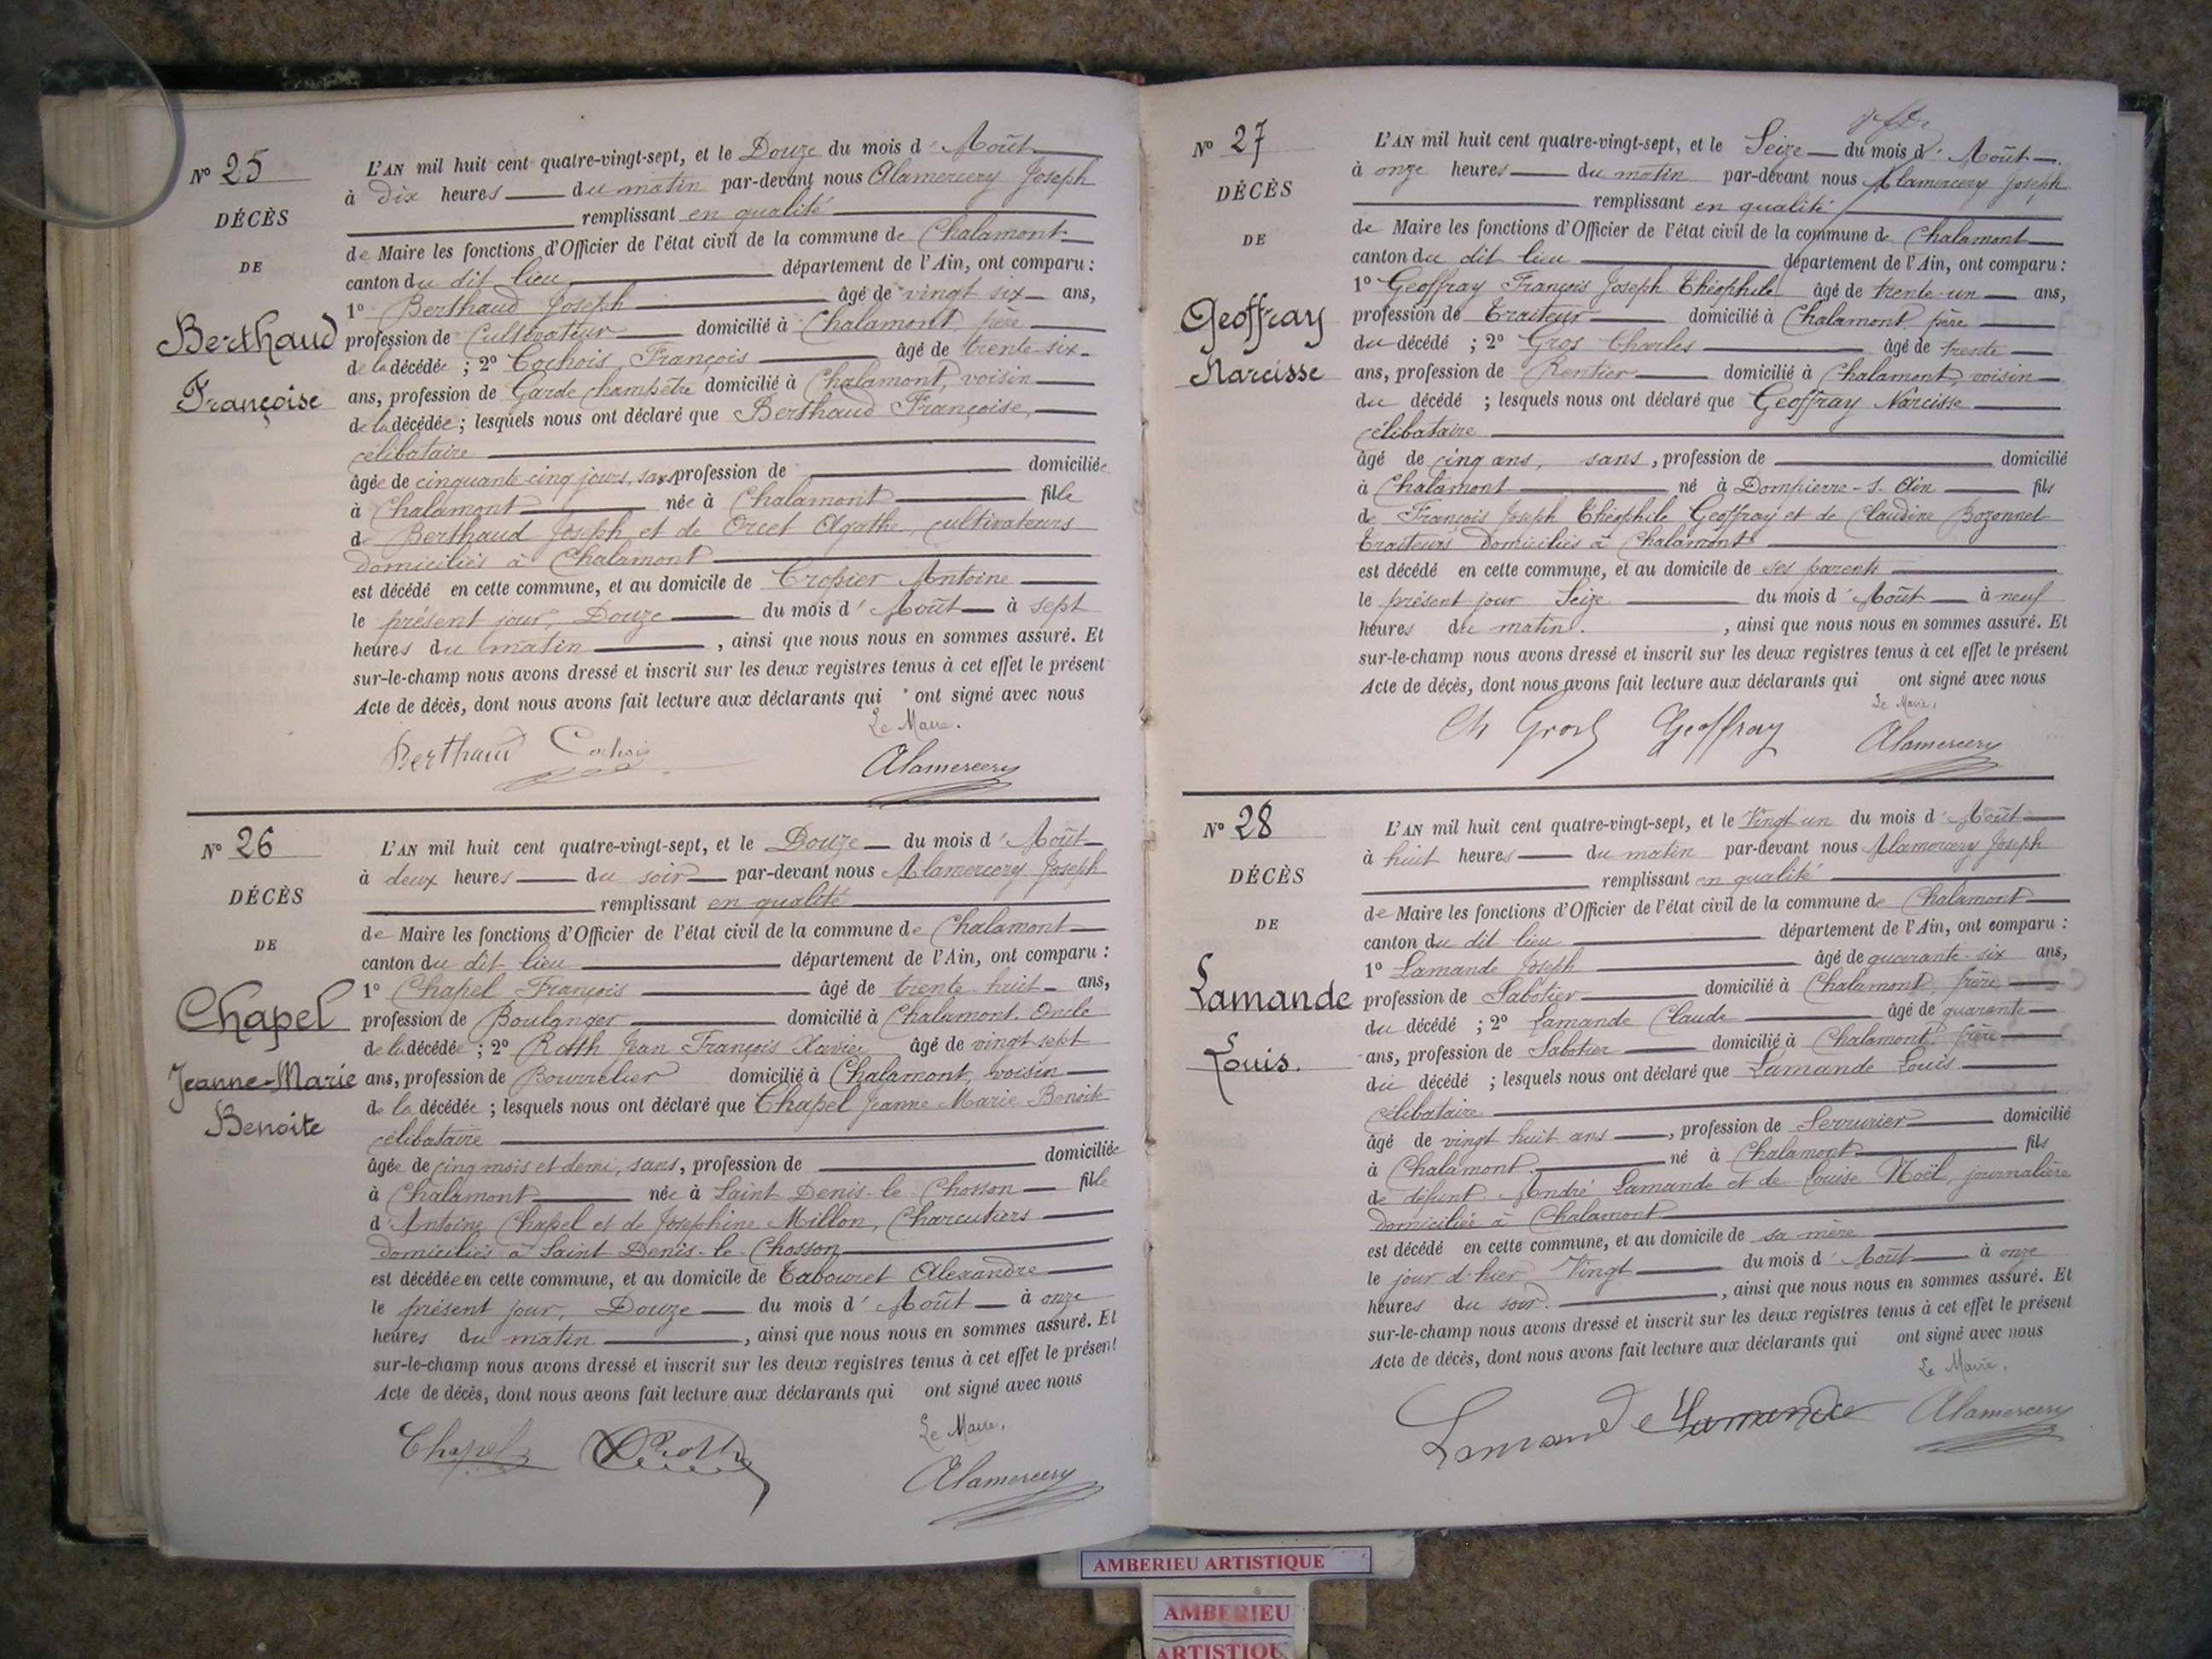 N° 25
DÉCÈS
DE
Berthaud
Françoise
L'AN mil huit cent quatre-vingt-sept, et le Douze du mois d'Août
à dix heures du matin par-devant nous Alamercery Joseph
remplissant en qualité
de Maire les fonctions d'Officier de l'état civil de la commune de Chalamont
canton du dit lieu département de l'Ain, ont comparu :
1° Berthaud Joseph âgé de vingt six ans,
profession de Cultivateur domicilié à Chalamont, père
de la décédée ; 2° Cochois François âgé de trente-six
ans, profession de Garde champêtre domicilié à Chalamont, voisin
de la décédée ; lesquels nous ont déclaré que Berthaud Françoise,
célibataire
âgée de cinquante-cinq jours, sans profession de domiciliée
à Chalamont née à Chalamont fille
de Berthaud Joseph et de Orcet Agathe, cultivateurs
domiciliés à Chalamont
est décédé en cette commune, et au domicile de Cropier Antoine
le présent jour, Douze du mois d'Août à sept
heures du matin , ainsi que nous nous en sommes assuré. Et
sur-le-champ nous avons dressé et inscrit sur les deux registres tenus à cet effet le présent
Acte de décès, dont nous avons fait lecture aux déclarants qui ont signé avec nous
Le Maire.
Berthaud Cochois Alamercery
N° 26
DÉCÈS
DE
Chapel
Jeanne-Marie
Benoite
L'AN mil huit cent quatre-vingt-sept, et le Douze du mois d'Août
à deux heures du soir par-devant nous Alamercery Joseph
remplissant en qualité
de Maire les fonctions d'Officier de l'état civil de la commune de Chalamont
canton du dit lieu département de l'Ain, ont comparu :
1° Chapel François âgé de trente-huit ans,
profession de Boulanger domicilié à Chalamont. Oncle
de la décédée ; 2° Rotth Jean François Xavier âgé de vingt sept
ans, profession de Bourrelier domicilié à Chalamont, voisin
de la décédée ; lesquels nous ont déclaré que Chapel Jeanne Marie Benoite
célibataire
âgée de cinq mois et demi, sans, profession de domiciliée
à Chalamont née à Saint Denis-le-Chosson fille
d'Antoine Chapel et de Joséphine Millon, Charcutiers
domiciliés à Saint Denis-le-Chosson
est décédée en cette commune, et au domicile de Tabouret Alexandre
le présent jour, Douze du mois d'Août à onze
heures du matin , ainsi que nous nous en sommes assuré. Et
sur-le-champ nous avons dressé et inscrit sur les deux registres tenus à cet effet le présent
Acte de décès, dont nous avons fait lecture aux déclarants qui ont signé avec nous
Le Maire.
Chapel Rotth Alamercery
N° 27
DÉCÈS
DE
Geoffray
Narcisse
L'AN mil huit cent quatre-vingt-sept, et le Seize du mois d'Août
à onze heures du matin par-devant nous Alamercery Joseph
remplissant en qualité
de Maire les fonctions d'Officier de l'état civil de la commune de Chalamont
canton du dit lieu département de l'Ain, ont comparu :
1° Geoffray François Joseph Théophile âgé de trente-un ans,
profession de Traiteur domicilié à Chalamont, père
du décédé ; 2° Gros Charles âgé de trente
ans, profession de Rentier domicilié à Chalamont, voisin
du décédé ; lesquels nous ont déclaré que Geoffray Narcisse
célibataire
âgé de cinq ans, sans, profession de domicilié
à Chalamont né à Dompierre-s-Ain fils
de François Joseph Théophile Geoffray et de Claudine Bozonnet
traiteurs domiciliés à Chalamont
est décédé en cette commune, et au domicile de ses parents
le présent jour Seize du mois d'Août à neuf
heures du matin. , ainsi que nous nous en sommes assuré. Et
sur-le-champ nous avons dressé et inscrit sur les deux registres tenus à cet effet le présent
Acte de décès, dont nous avons fait lecture aux déclarants qui ont signé avec nous
Le Maire,
Ch Gros Geoffray Alamercery
N° 28
DÉCÈS
DE
Lamande
Louis.
L'AN mil huit cent quatre-vingt-sept, et le Vingt un du mois d'Août
à huit heures du matin par-devant nous Alamercery Joseph
remplissant en qualité
de Maire les fonctions d'Officier de l'état civil de la commune de Chalamont
canton du dit lieu département de l'Ain, ont comparu :
1° Lamande Joseph âgé de quarante-six ans,
profession de Sabotier domicilié à Chalamont, frère
du décédé ; 2° Lamande Claude âgé de quarante
ans, profession de Sabotier domicilié à Chalamont, frère
du décédé ; lesquels nous ont déclaré que Lamande Louis
célibataire
âgé de vingt huit ans , profession de Serrurier domicilié
à Chalamont. né à Chalamont fils
de défunt André Lamande et de Louise Noël, journalière
domiciliée à Chalamont
est décédé en cette commune, et au domicile de sa mère
le jour d'hier Vingt du mois d'Août à onze
heures du soir. , ainsi que nous nous en sommes assuré. Et
sur-le-champ nous avons dressé et inscrit sur les deux registres tenus à cet effet le présent
Acte de décès, dont nous avons fait lecture aux déclarants qui ont signé avec nous
Le Maire,
Lamande Lamande Alamercery
AMBERIEU ARTISTIQUE
AMBERIEU
ARTISTIQUE